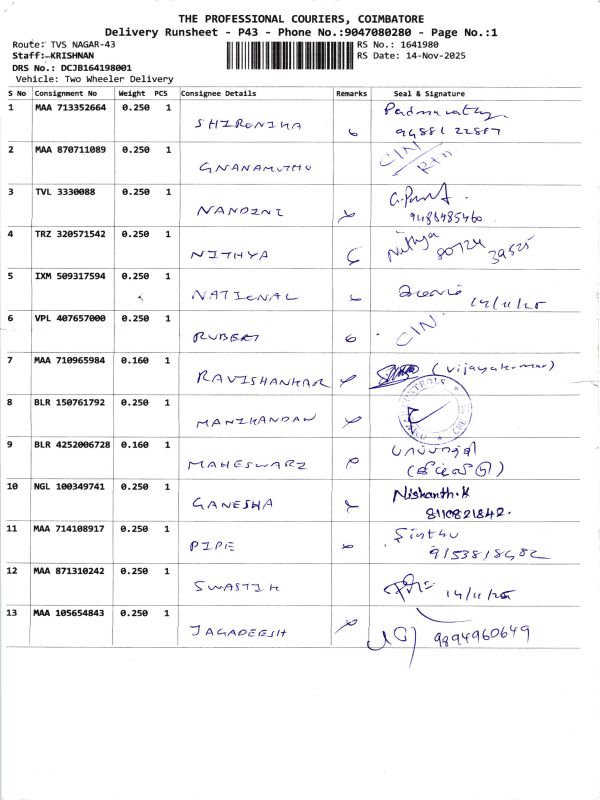 THE PROFESSIONAL COURIERS, COIMBATORE
Delivery Runsheet - P43 - Phone No.:9047080280 - Page No.:1
Route: TVS NAGAR-43 RS No.: 1641980
Staff:-KRISHNAN RS Date: 14-Nov-2025
DRS No.: DCJB164198001
Vehicle: Two Wheeler Delivery
S No Consignment No Weight PCS Consignee Details Remarks Seal & Signature
1 MAA 713352664 0.250 1
SHIRONIKA
2 MAA 870711089 0.250 1 CIN
GNANAMUTHU
3 TVL 3330088 0.250 1
NANDINI 9486485460
4 TRZ 320571542 0.250 1 Nithya
NITHYA 80724 39525
5 IXM 509317594 0.250 1
NATIONAL 14/11/25
6 VPL 407657000 0.250 1 CIN
RUBERT
7 MAA 710965984 0.160 1 (Vijayakumar)
RAVISHANKAR
8 BLR 150761792 0.250 1 CONTROLS
MANIKANDAN
9 BLR 4252006728 0.160 1
MAHESWARI
10 NGL 100349741 0.250 1 Nishanth.K
GANESHA 8110821842.
11 MAA 714108917 0.250 1
PIPE
12 MAA 871310242 0.250 1
SWASTIK 14/11/25
13 MAA 105654843 0.250 1
JAGADEESH 9894960649